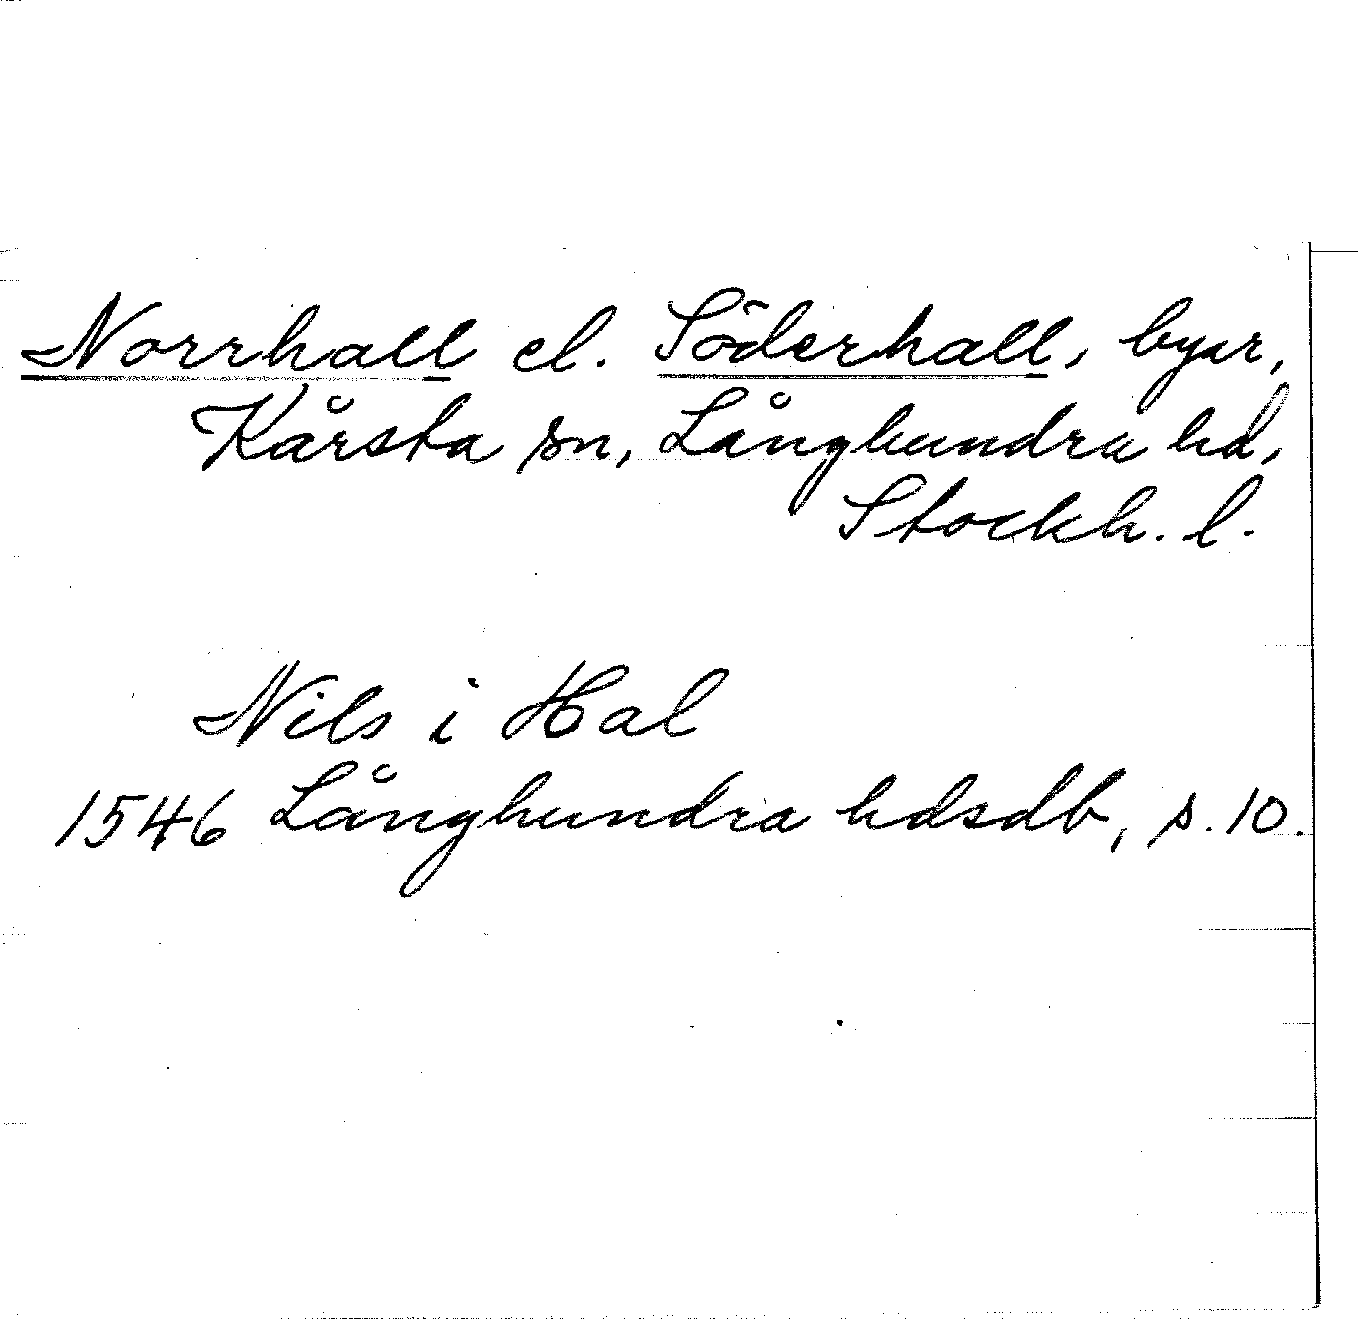 Norrhall el. Söderhall, byar,
Kårsta sn, Långhundra hd,
Stockh. l.
Nils i Hal
1546 Långhundra hdsdb, s. 10.